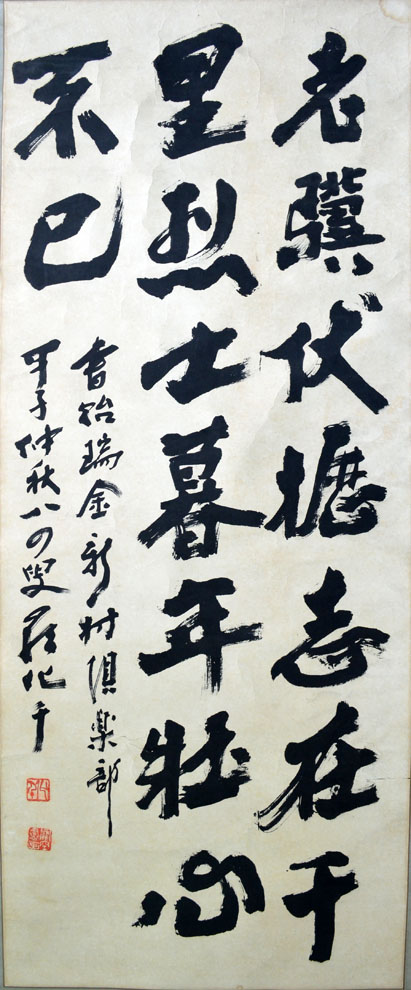 老驥伏櫪志在千
里烈士暮年壯心
不已
書貽瑞金新村俱樂部
甲子仲秋八四叟化千